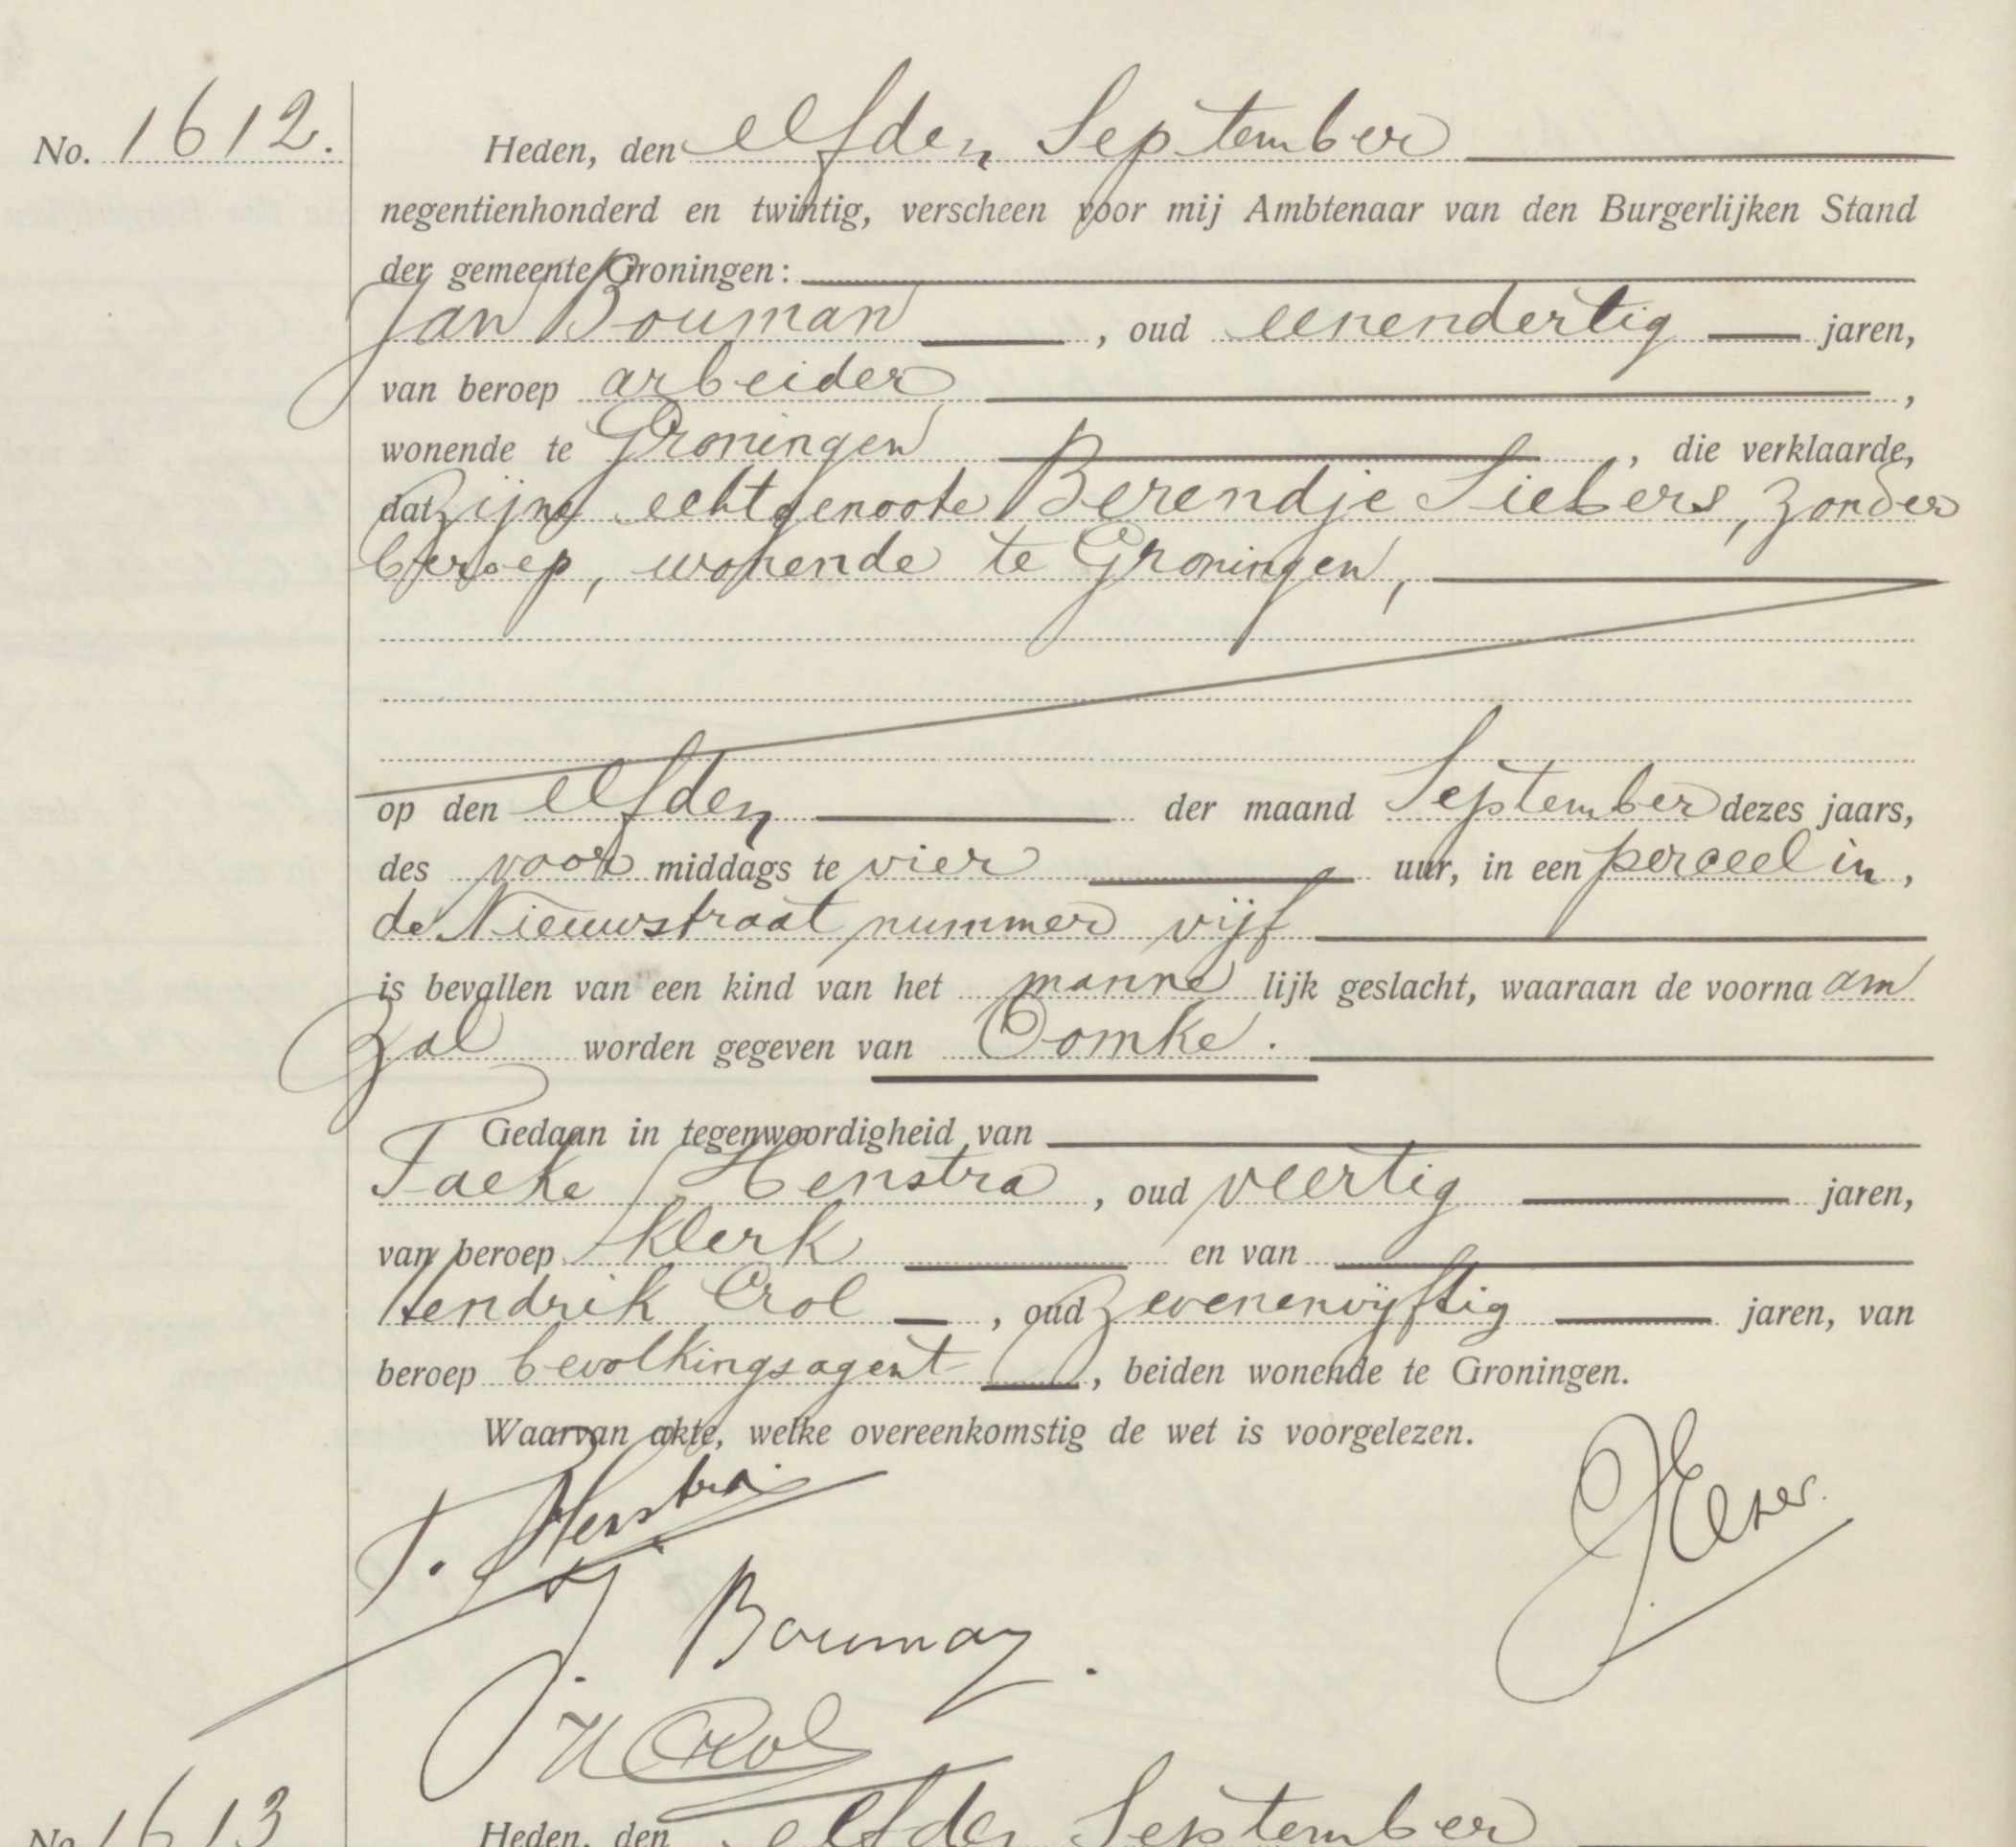 No. 1612.
Heden, den elfden September
negentienhonderd en twintig, verscheen voor mij Ambtenaar van den Burgerlijken Stand
der gemeente Groningen:
Jan Bouman, oud eenendertig jaren,
van beroep arbeider,
wonende te Groningen, die verklaarde,
dat zijne echtgenoote Berendje Siebers, zonder
beroep, wonende te Groningen,
op den elfden der maand September dezes jaars,
des voor middags te vier uur, in een perceel in,
de Nieuwstraat nummer vijf
is bevallen van een kind van het manne lijk geslacht, waaraan de voorna am
zal worden gegeven van Oomke.
Gedaan in tegenwoordigheid van
Taeke Henstra, oud veertig jaren,
van beroep klerk en van
Hendrik Crol, oud zevenenvijftig jaren, van
beroep bevolkingsagent, beiden wonende te Groningen.
Waarvan akte, welke overeenkomstig de wet is voorgelezen.
T. Henstra
J. Bouman.
H Crol
No 1613
Heden, den elfden September